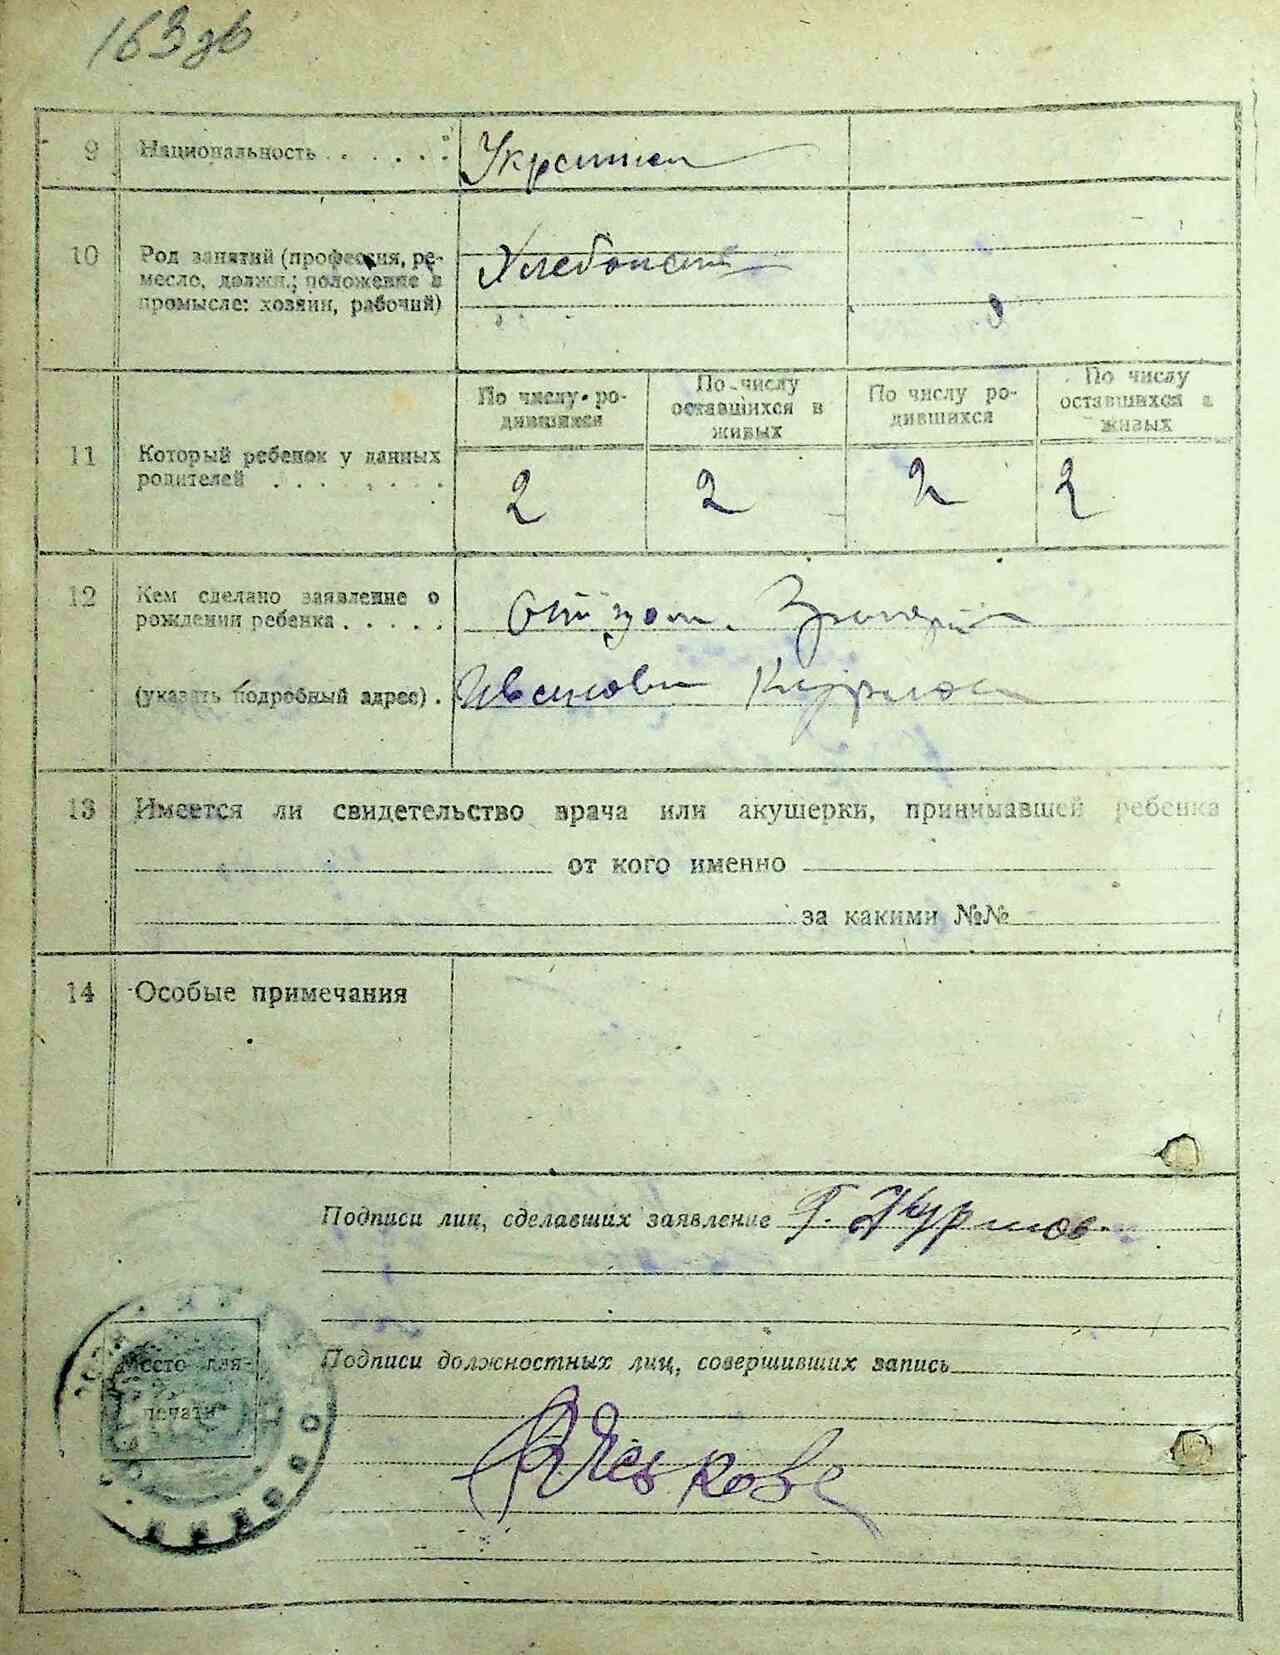 163 зв
9 Национальность . . . . . . Украинец
10 Род занятий (профессия, ре-
месло, должн.; положение в
промысле: хозяин, рабочий)
Хлебопашец
По числу ро-
дившихся
По числу
оставшихся в
живых
По числу ро-
дившихся
По числу
оставшихся в
живых
11 Который ребенок у данных
родителей . . . . . . .
2 2 2 2
12 Кем сделано заявление о
рождении ребенка . . . . .
Отцом
(указать подробный адрес) .
13 Имеется ли свидетельство врача или акушерки, принимавшей ребенка
от кого именно
за какими №№
14 Особые примечания
Подписи лиц, сделавших заявление Г.
Место для
печати
Подписи должностных лиц, совершивших запись